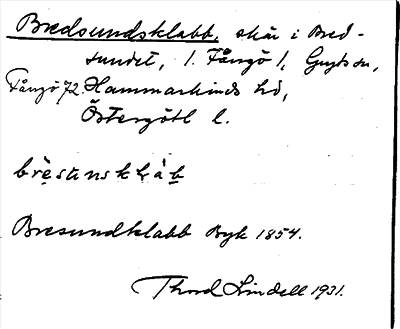 Bredsundsklabb, skär i Bred-
sundet, 1. Fångö 1, Gryts sn,
Fångö 72. Hammarkinds hd,
Östergötl l.
brèsunsklàb
Bresundklabb Byk 1854.
Thord Lindell 1931.